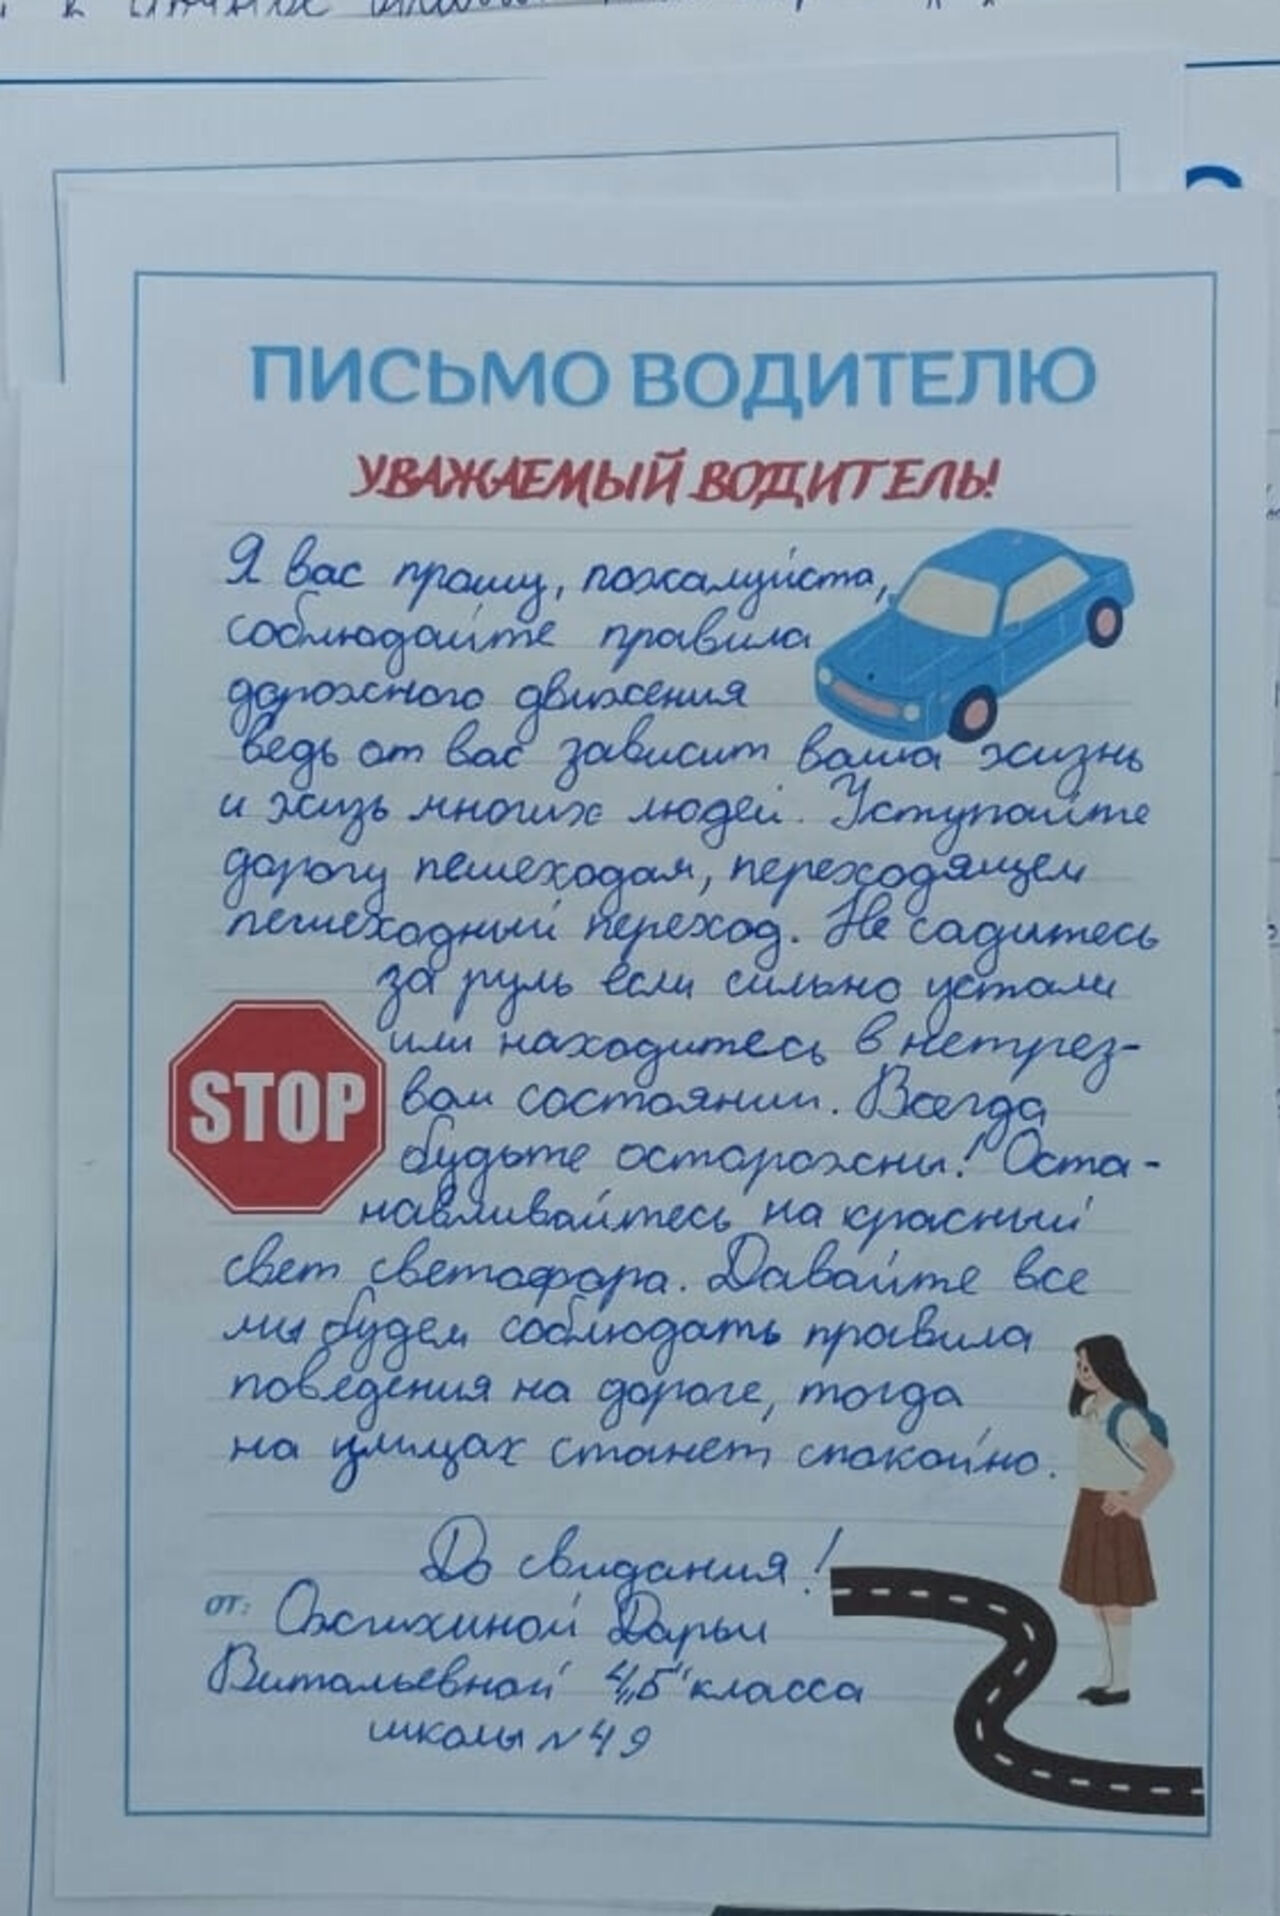 ПИСЬМО ВОДИТЕЛЮ
УВАЖАЕМЫЙ ВОДИТЕЛЬ!
Я вас прошу, пожалуйста,
соблюдайте правила
дорожного движения
ведь от вас зависит ваша жизнь
и жизь многих людей. Уступайте
дорогу пешеходам, переходящем
пешеходный переход. Не садитесь
за руль если сильно устали
или находитесь в нетрез-
вом состоянии. Всегда
будьте осторожны! Оста-
навливайтесь на красный
свет светофора. Давайте все
мы будем соблюдать правила
поведения на дороге, тогда
на улицах станет спокойно.
STOP
До свидания!
от: Ожгихиной Дарьи
Витальевной 4„Б" класса
школы №49